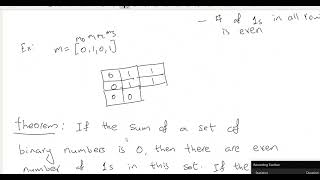 - # of 1s in all row
is even
Ex:
m₀ m₁ m₂ m₃
m = [0,1,0,1]
0 1 1
0 1 1
0 0
Theorem: If the sum of a set of
binary numbers is 0, then there are even
number of 1s in this set. If the